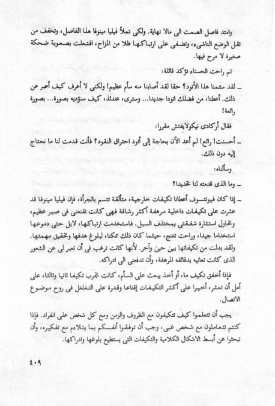 وامتد فاصل الصمت الى مالا نهاية. ولكي تملأ فيليا مينوفا هذا الفاصل، وتخفف من
ثقل الوضع الناشىء، وتضفي على ارتباكها ظلا من المزاح، افتعلت بصعوبة ضحكة
صغيرة لا مرح فيها.
ثم راحت الحسناء تؤكد قائلة:
ـ لقد سئمنا هذا الأنود؟ حقا لقد أصابنا منه سأم عظيم! ولكني لا أعرف كيف أعبر عن
ذلك. أعطنا، من فضلك انودا جديدا... وسترى، عندئذ، كيف سنؤديه بصورة... بصورة
رائعة!
فقال أركادي نيكولايفتش مقررا:
ـ أحسنت! رائع! لم أعد الآن بحاجة إلى أنود احتراق النقود؟ فأنت قدمت لنا ما نحتاج
إليه دون ذلك.
وسألناه:
ـ وما الذي قدمته لنا تحديدا؟
ـ إذا كان فيونتسوف أعطانا تكيفات خارجية، متألقة تتسم بالجرأة، فإن فيليا مينوفا قد
عثرت على تكيفات داخلية مرهفة أكثر رشاقة فهي كانت تقنعني في صبر عظيم،
وتحاول استثارة شفقتي بمختلف السبل. فاستخدمت ارتباكها، لابل حتى دموعها
استخداما جيدا، وراحت تغنج، حيثما كان ذلك ممكنا، لبلوغ هدفها وتحقيق مهمتها.
ولقد بدلت من تكيفاتها بين حين وآخر. لأنها كانت ترغب في أن تعبر لي عن الشعور
الذي كانت تعانيه بدقائقه المرهفة، وأن تدفعني الى ادراكه.
فإذا أخفق تكيف ما، أو أخذ يبعث على السأم، كانت تجرب تكيفا ثانيا وثالثا، على
أمل أن تعثر، أخيرا على أكثر التكيفات إقناعا وقدرة على التغلغل في روح موضوع
الاتصال.
يجب أن تتعلموا كيف تتكيفون مع الظروف والزمن ومع كل شخص على انفراد. فإذا
كنتم تتعاملون مع شخص غبي، وجب أن توفقوا أنفسكم بما يتلاءم مع تفكيره، وأن
تبحثوا عن أبسط الاشكال الكلامية والتكيفات التي يستطيع بلوغها وادراكها.
٤٠٩